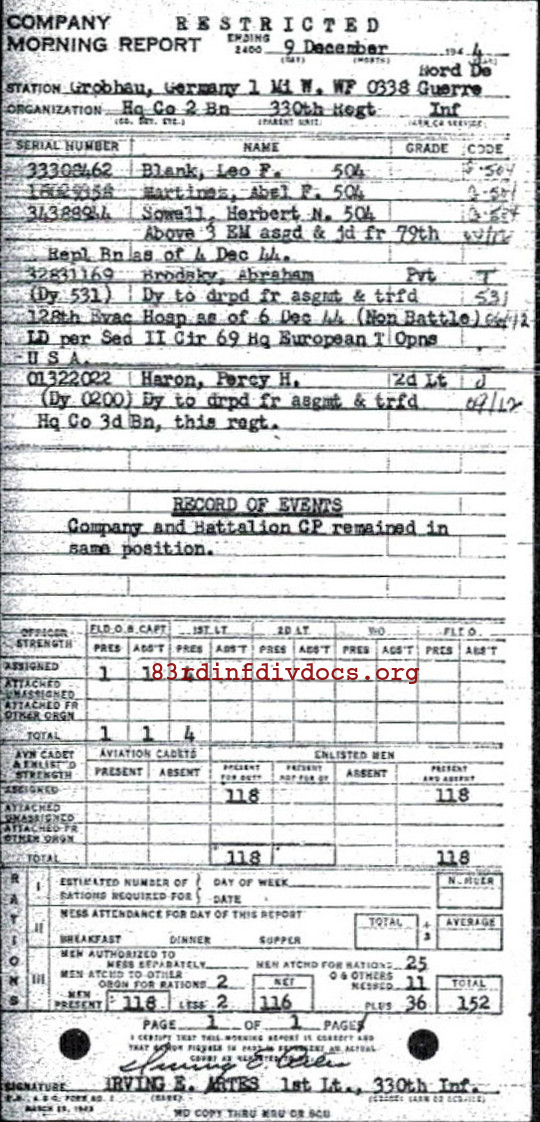 COMPANY RESTRICTED
MORNING REPORT ENDING 2400 9 December 1944
(DAY) (MONTH)
Nord De
STATION Grobhau, Germany 1 Mi W. WF 0338 Guerre
ORGANIZATION Hq Co 2 Bn 330th Regt Inf
(CO. DET. ETC.) (PARENT UNIT) (ARM OR SERVICE)
SERIAL NUMBER NAME GRADE CODE
33308462 Blank, Leo F. 504
Martinez, Abel F. 504
34388944 Sowell, Herbert N. 504
Above 3 EM asgd & jd fr 79th
Repl Bn as of 4 Dec 44.
32831169 Brodsky, Abraham Pvt T
(Dy 531) Dy to drpd fr asgmt & trfd 531
128th Evac Hosp as of 6 Dec 44 (Non Battle)
LD per Sec II Cir 69 Hq European T Opns
U S A.
01322022 Haron, Percy H. 2d Lt J
(Dy 0200) Dy to drpd fr asgmt & trfd 09/12
Hq Co 3d Bn, this regt.
RECORD OF EVENTS
Company and Battalion CP remained in
same position.
OFFICER STRENGTH FLD.O.& CAPT 1ST LT 2D LT WO FLT O.
PRES ABS'T PRES ABS'T PRES ABS'T PRES ABS'T PRES ABS'T
ASSIGNED 1 1 4
83rdinfdivdocs.org
ATTACHED UNASSIGNED
ATTACHED FR OTHER ORGN
TOTAL 1 1 4
AVN CADET & ENLISTED STRENGTH AVIATION CADETS ENLISTED MEN
PRESENT ABSENT PRESENT FOR DUTY PRESENT NOT FOR DY ABSENT PRESENT AND ABSENT
ASSIGNED 118 118
ATTACHED UNASSIGNED
ATTACHED FR OTHER ORGN
TOTAL 118 118
RATIONS
I ESTIMATED NUMBER OF RATIONS REQUIRED FOR DAY OF WEEK DATE NUMBER
II MESS ATTENDANCE FOR DAY OF THIS REPORT
BREAKFAST DINNER SUPPER TOTAL ÷ 3 AVERAGE
III MEN AUTHORIZED TO MESS SEPARATELY MEN ATCHD FOR RATIONS 25
MEN ATCHD TO OTHER ORGN FOR RATIONS 2 NET O & OTHERS MESSED 11 TOTAL
MEN PRESENT 118 LESS 2 116 PLUS 36 152
PAGE 1 OF 1 PAGES
I CERTIFY THAT THIS MORNING REPORT IS CORRECT AND
SIGNATURE IRVING E. ARTES 1st Lt., 330th Inf.
(NAME) (GRADE) (ARM OR SERVICE)
NO COPY THRU MRU OR SCU